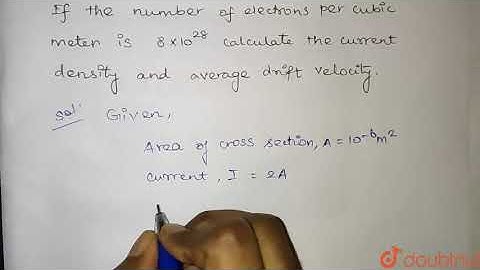 If the number of electrons per cubic
meter is 8×10²⁸ calculate the current
density and average drift velocity.
Sol: Given,
Area of cross section, A = 10⁻⁶m²
current, I = 2A
doubtnut